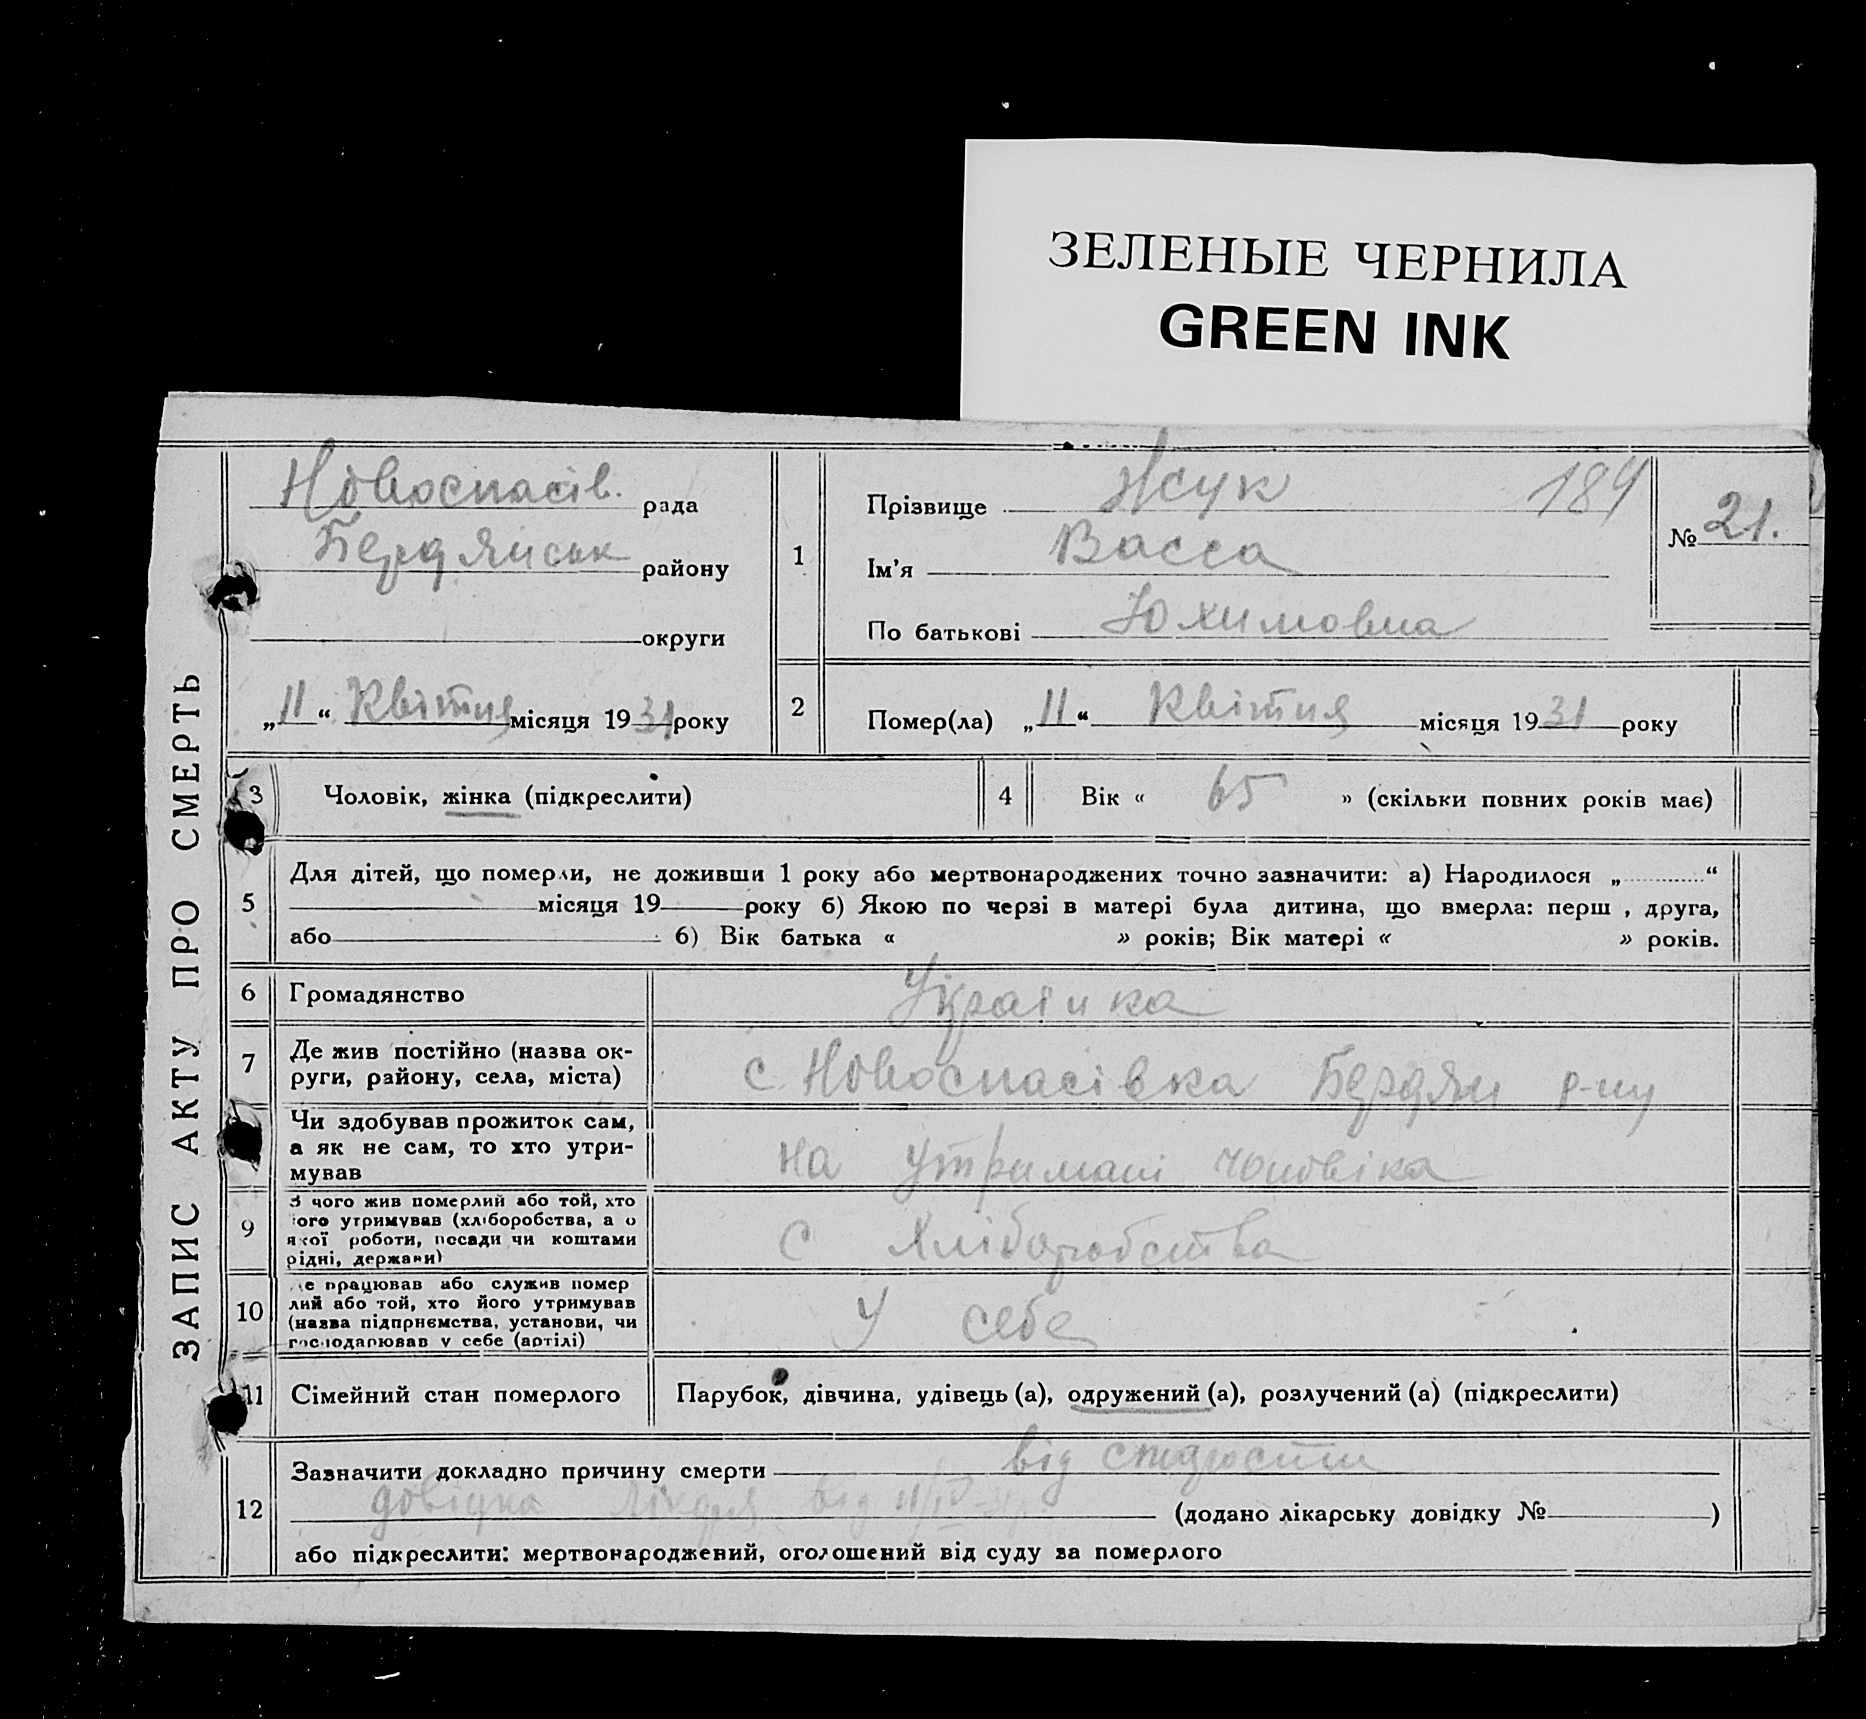 ЗЕЛЕНЫЕ ЧЕРНИЛА
GREEN INK
ЗАПИС АКТУ ПРО СМЕРТЬ
Новоспасів. рада
Бердянськ району
округи
„11“ Квітня місяця 1931 року
1
Прізвище Жук 184
Ім'я Васса
По батькові Юхимовна
№ 21.
2
Помер(ла) „11“ Квітня місяця 1931 року
3 Чоловік, жінка (підкреслити)
4 Вік « 65 » (скільки повних років має)
5
Для дітей, що померли, не доживши 1 року або мертвонароджених точно зазначити: а) Народилося „ “
місяця 19 року б) Якою по черзі в матері була дитина, що вмерла: перш , друга,
або б) Вік батька « » років; Вік матері « » років.
6 Громадянство Українка
7 Де жив постійно (назва ок-
руги, району, села, міста)
с. Новоспасівка Бердян р-ну
Чи здобував прожиток сам,
а як не сам, то хто утри-
мував
на утримані чоловіка
9
З чого жив померлий або той, хто
ого утримував (хліборобства, а о
якої роботи, посади чи коштами
рідні, держави)
с хліборобства
10
е працював або служив помер
лий або той, хто його утримував
(назва підприємства, установи, чи
господарював у себе (артілі)
У себе
11 Сімейний стан померлого Парубок, дівчина, удівець (а), одружений (а), розлучений (а) (підкреслити)
12
Зазначити докладно причину смерти від старости
довідка лікаря від 11/IV-31р. (додано лікарську довідку № )
або підкреслити: мертвонароджений, оголошений від суду за померлого